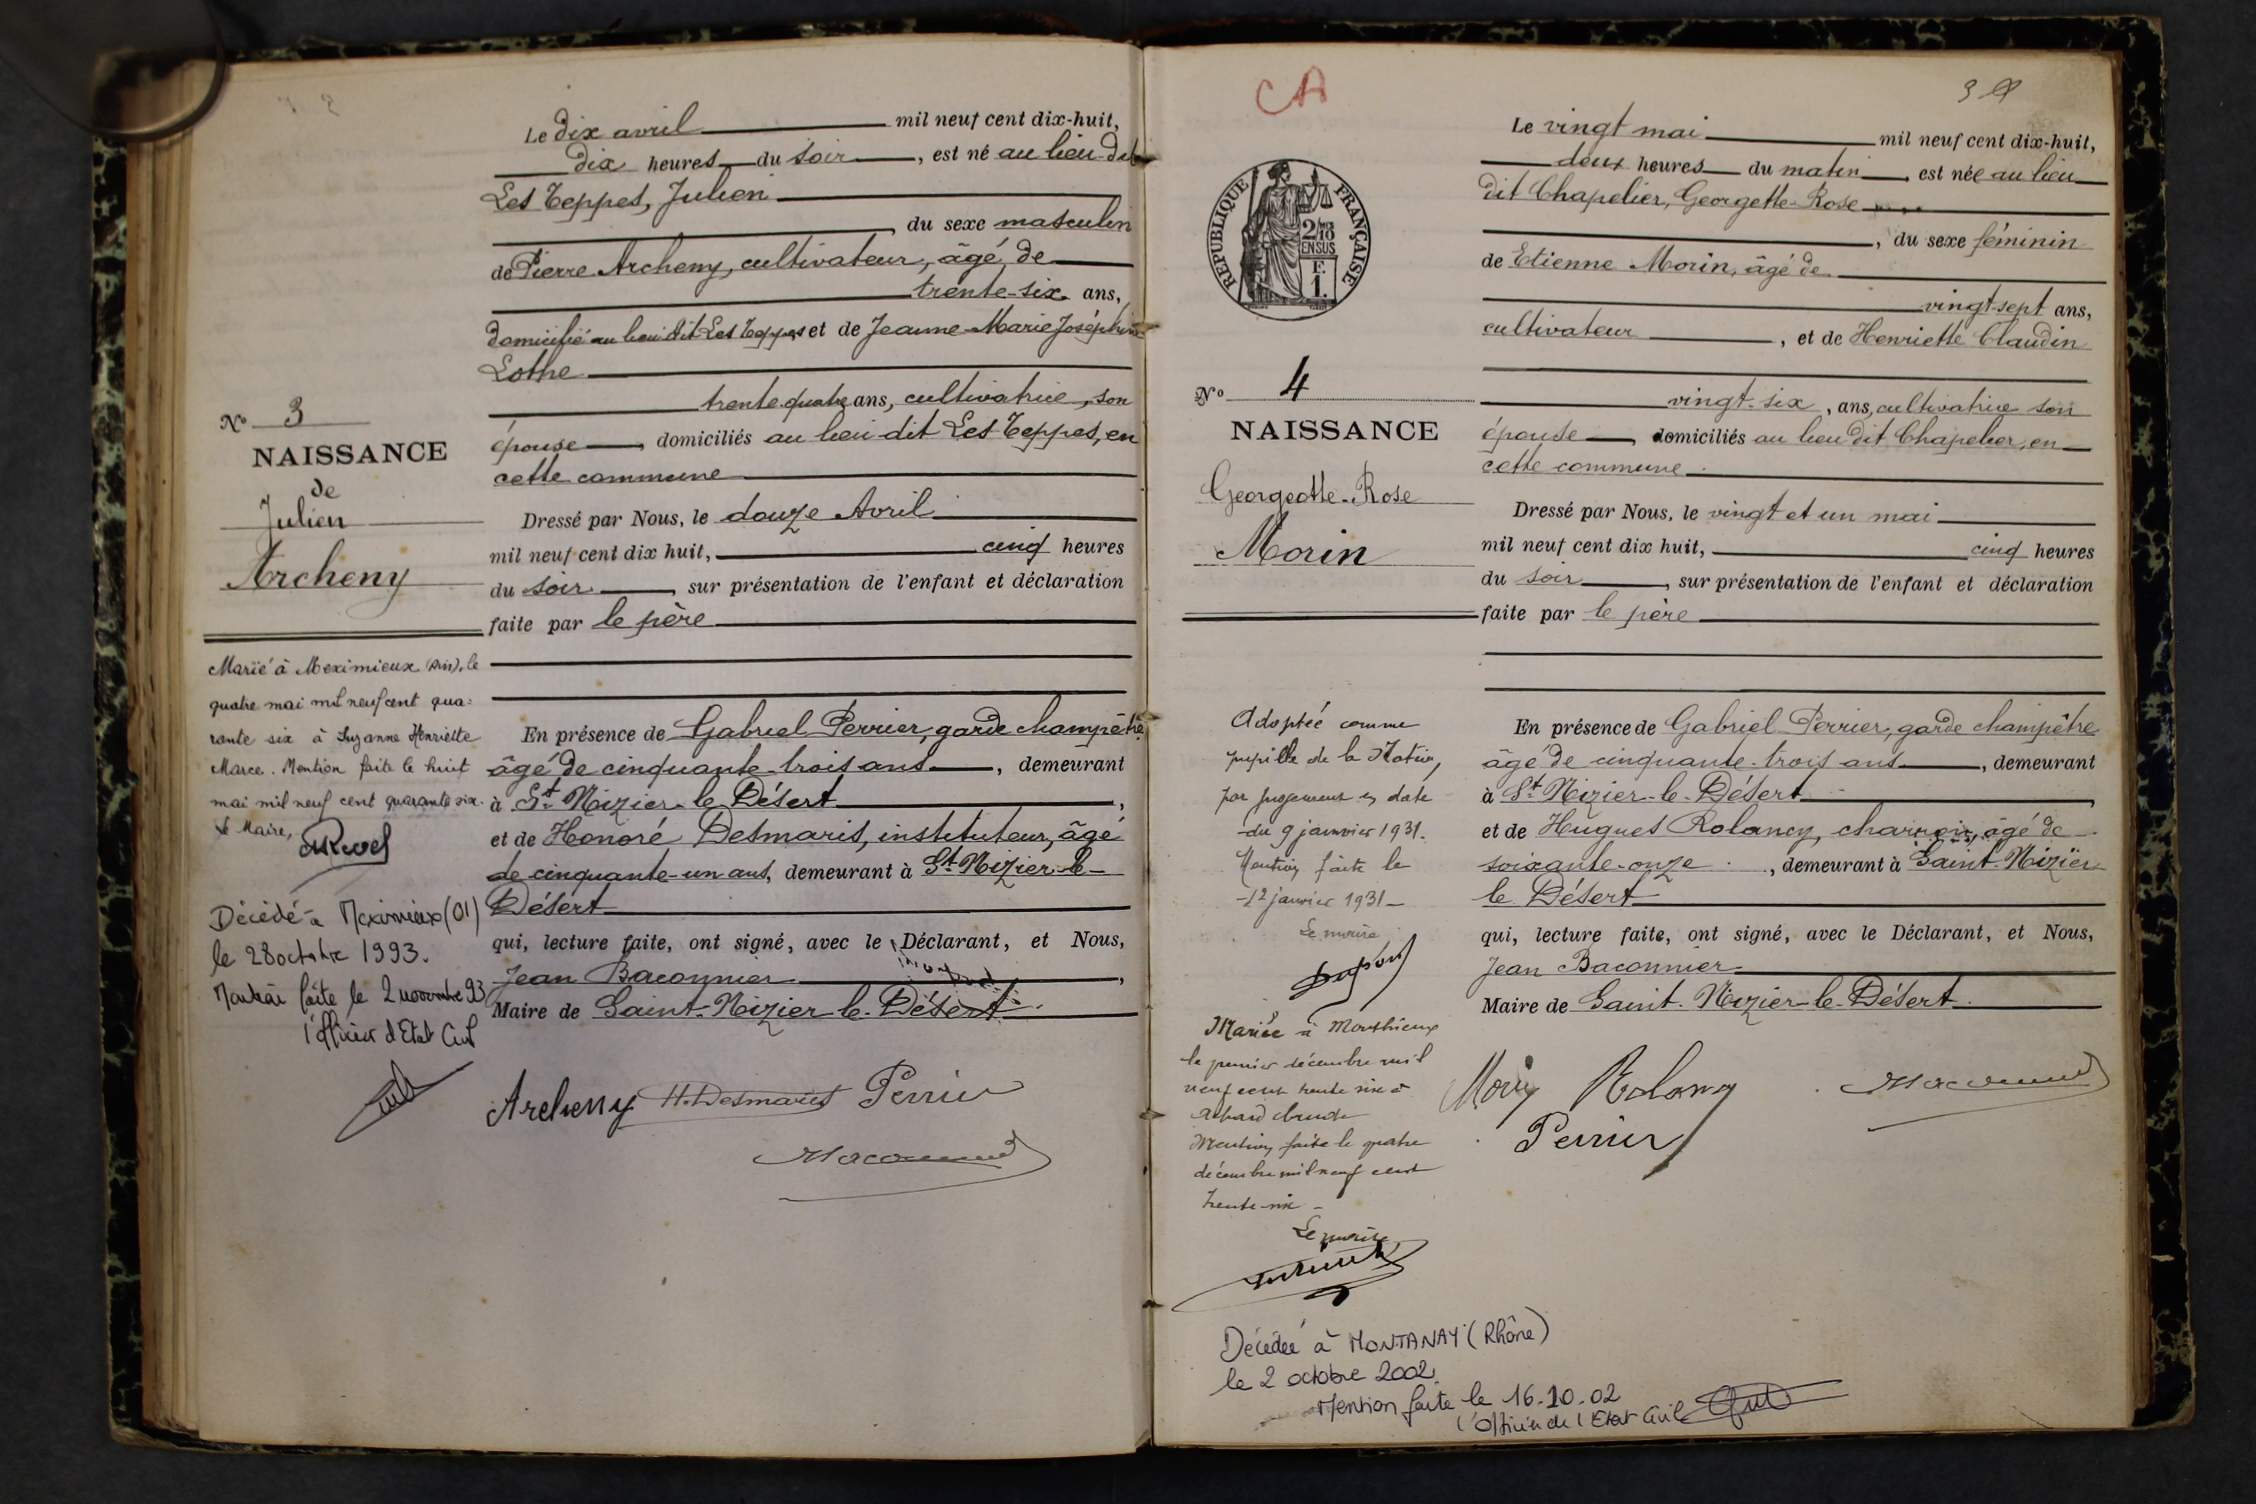 Le dix avril mil neuf cent dix-huit,
dix heures du soir, est né au lieu-dit
Les Teppes, Julien
du sexe masculin
de Pierre Archeny, cultivateur, âgé de
trente-six ans,
domicilié au lieu dit Les Teppes et de Jeanne-Marie Joséphine
Lothe
trente-quatre ans, cultivatrice, son
épouse, domiciliés au lieu-dit Les Teppes, en
cette commune
Nº 3
NAISSANCE
de
Julien
Archeny
Dressé par Nous, le douze Avril
mil neuf cent dix huit, cinq heures
du soir, sur présentation de l'enfant et déclaration
faite par le père
En présence de Gabriel Perrier, garde champêtre
âgé de cinquante-trois ans, demeurant
à St Nizier-le-Désert,
et de Honoré Desmaris, instituteur, âgé
de cinquante-un ans, demeurant à St Nizier-le-
Désert
qui, lecture faite, ont signé, avec le Déclarant, et Nous,
Jean Baconnier,
Maire de Saint-Nizier-le-Désert.
Archeny H. Desmaris Perrier
Marié à Meximieux (Ain), le
quatre mai mil neuf cent qua-
rante six à Suzanne Henriette
Marce. Mention faite le huit
mai mil neuf cent quarante six.
Le Maire,
Décédé à Meximieux (01)
le 28 octobre 1993.
Mention faite le 2 novembre 93
l'officier d'Etat Civil
CA
3
REPUBLIQUE FRANÇAISE
Le vingt mai mil neuf cent dix-huit,
deux heures du matin, est née au lieu
dit Chapelier, Georgette-Rose
, du sexe féminin
de Etienne Morin, âgé de
vingt-sept ans,
cultivateur, et de Henriette Claudin
vingt-six, ans, cultivatrice son
épouse, domiciliés au lieu dit Chapelier, en
cette commune.
Nº 4
NAISSANCE
Georgette-Rose
Morin
Dressé par Nous, le vingt et un mai
mil neuf cent dix huit, cinq heures
du soir, sur présentation de l'enfant et déclaration
faite par le père
En présence de Gabriel Perrier, garde champêtre
âgé de cinquante-trois ans, demeurant
à St Nizier-le-Désert,
et de Hugues Rolancy, charron, âgé de
soixante-onze, demeurant à Saint-Nizier
le Désert
qui, lecture faite, ont signé, avec le Déclarant, et Nous,
Jean Baconnier
Maire de Saint-Nizier-le-Désert.
Morin Rolancy
Perrier
Adoptée comme
pupille de la Nation,
par jugement en date
du 9 janvier 1931.
Mention faite le
12 janvier 1931
Le maire
Dupont
Mariée à Monthieux
le premier décembre mil
neuf cent trente six à
Mention faite le quatre
décembre mil neuf cent
trente-six
Le maire
Décédée à MONTANAY (Rhône)
le 2 octobre 2002.
Mention faite le 16.10.02
l'Officier de l'Etat Civil